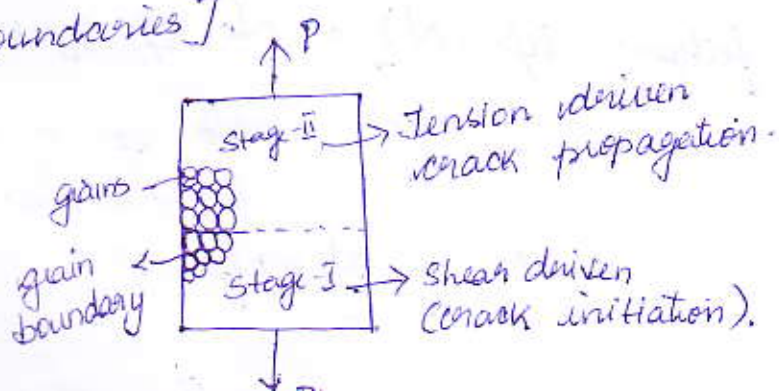 oundaries].
P
Stage-II
Tension driven
crack propagation.
grains
grain
boundary
Stage-I
Shear driven
(crack initiation).
P